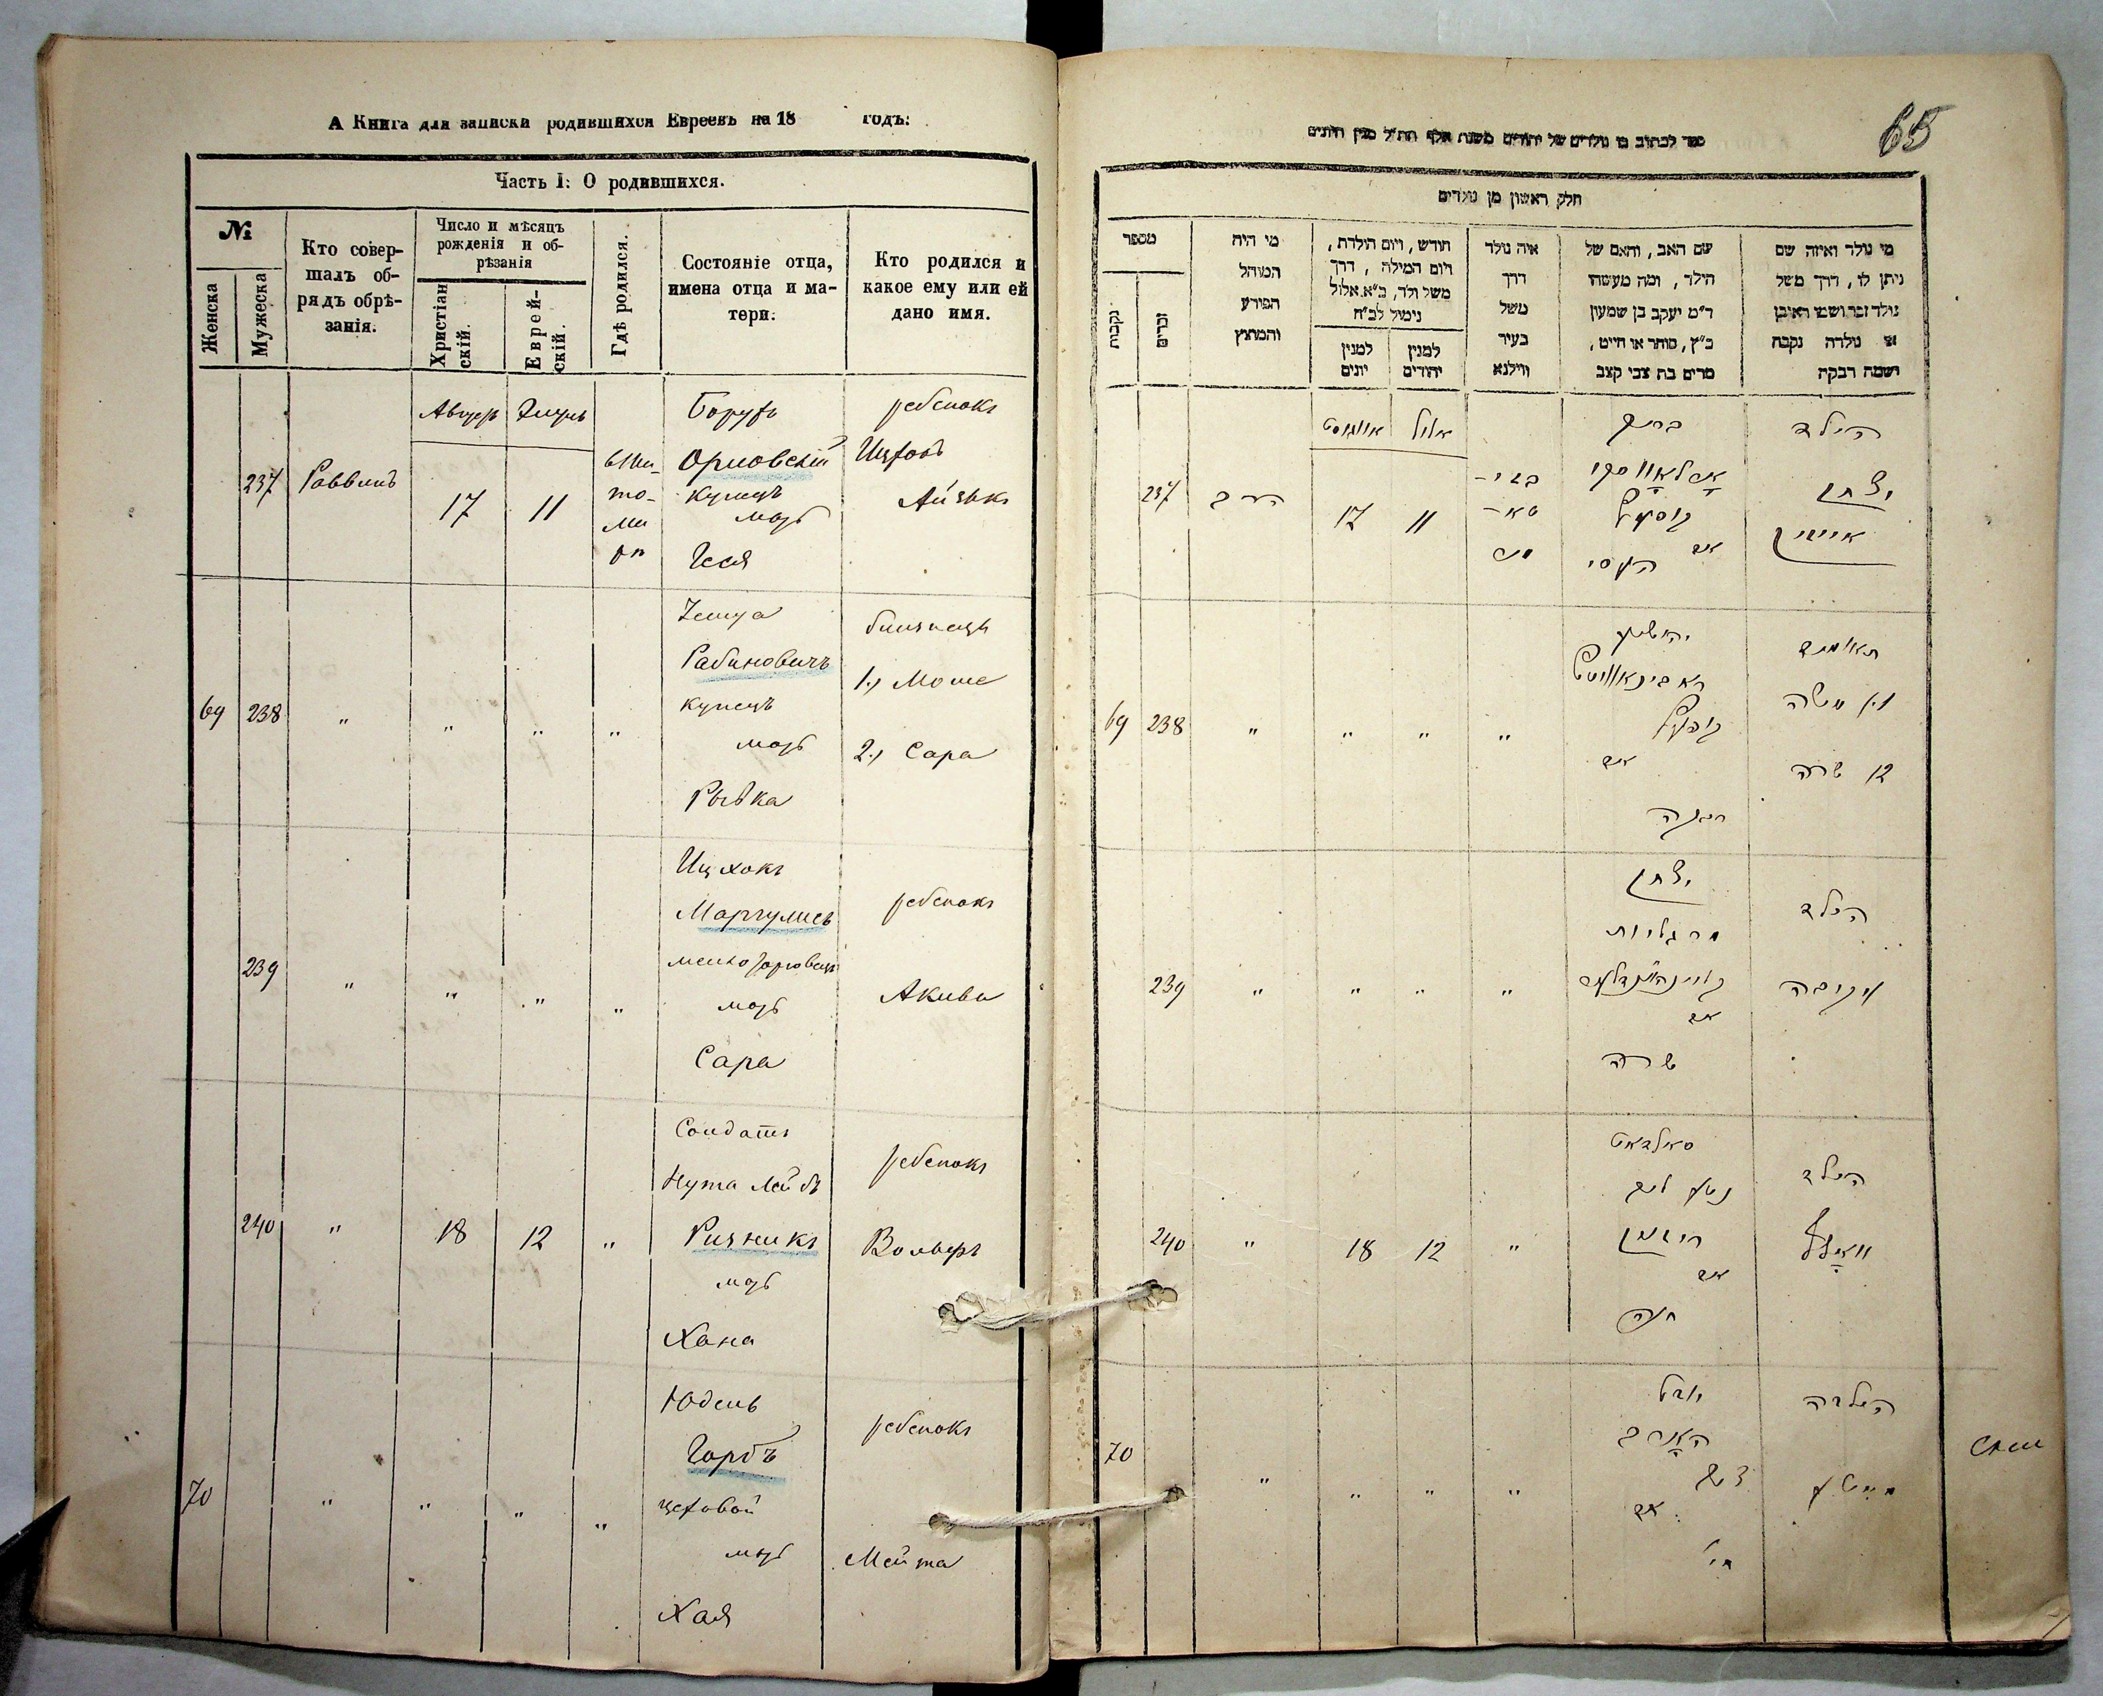 А Книга для записки родившихся Евреевъ на 18 годъ:
Часть I: О родившихся.
№
Женска
Мужеска
Кто совер-
шалъ об-
рядъ обрѣ-
занія.
Число и мѣсяцъ
рожденія и об-
рѣзанія
Христіан
скій.
Еврей-
скій.
Гдѣ родился.
Состояніе отца,
имена отца и ма-
тери.
Кто родился и
какое ему или ей
дано имя.
237
Раввинъ
17
11
Борухъ
Орловскій
купецъ
мать
Геся
ребенокъ
Ицхокъ
Айзыкъ
69 238 " " " "
Рабиновичъ
купецъ
мать
Рывка
близнецы
1.) Моше
2.) Сара
239 " " " "
Ицхокъ
Маргулисъ
мать
Сара
ребенокъ
Акива
240 " 18 12 "
Солдатъ
Нута Лейбъ
Ризникъ
мать
Хана
ребенокъ
Вольфъ
70 " " " "
Юдель
Горбъ
цеховой
мать
Хая
ребенокъ
Мейта
65
ספר לכתוב בו נולדים של יהודים משנת אלף תת"ל מנין היונים
חלק ראשון מן נולדים
מספר
נקבות
זכרים
מי היה
המוהל
הפורע
והמוצץ
חודש, ויום הולדת,
ויום המילה, דרך
משל ולד, ב"א אלול
נימול לב"ח
למנין
יונים
למנין
יהודים
איה נולד
דרך
משל
בעיר
ווילנא
שם האב, והאם של
הילד, ומה מעשהו
ד"מ יעקב בן שמעון
כ"ץ, סוחר או חייט,
מרים בת צבי קצב
מי נולד ואיזה שם
ניתן לו, דרך משל
נולד זכר ושמו ראובן
או נולדה נקבה
ושמה רבקה
237
הרב
אויגוסט
אלול
17
11
ברוך
אָרלאָווסקי
קופץ
אם
העסי
הילד
יצחק
אייזיק
69 238 " " " "
ראבינאוויטש
קופץ
אם
רבקה
תאומים
1) משה
2) שרה
239 " " " "
יצחק
מרגליות
אם
שרה
הילד
עקיבה
240 " 18 12 "
סאלדאט
נטע ליב
רוזניק
אם
חנה
הילד
וואָלף
70 " " " "
יודל
האָרב
אם
חי'
הילדה
מייטע